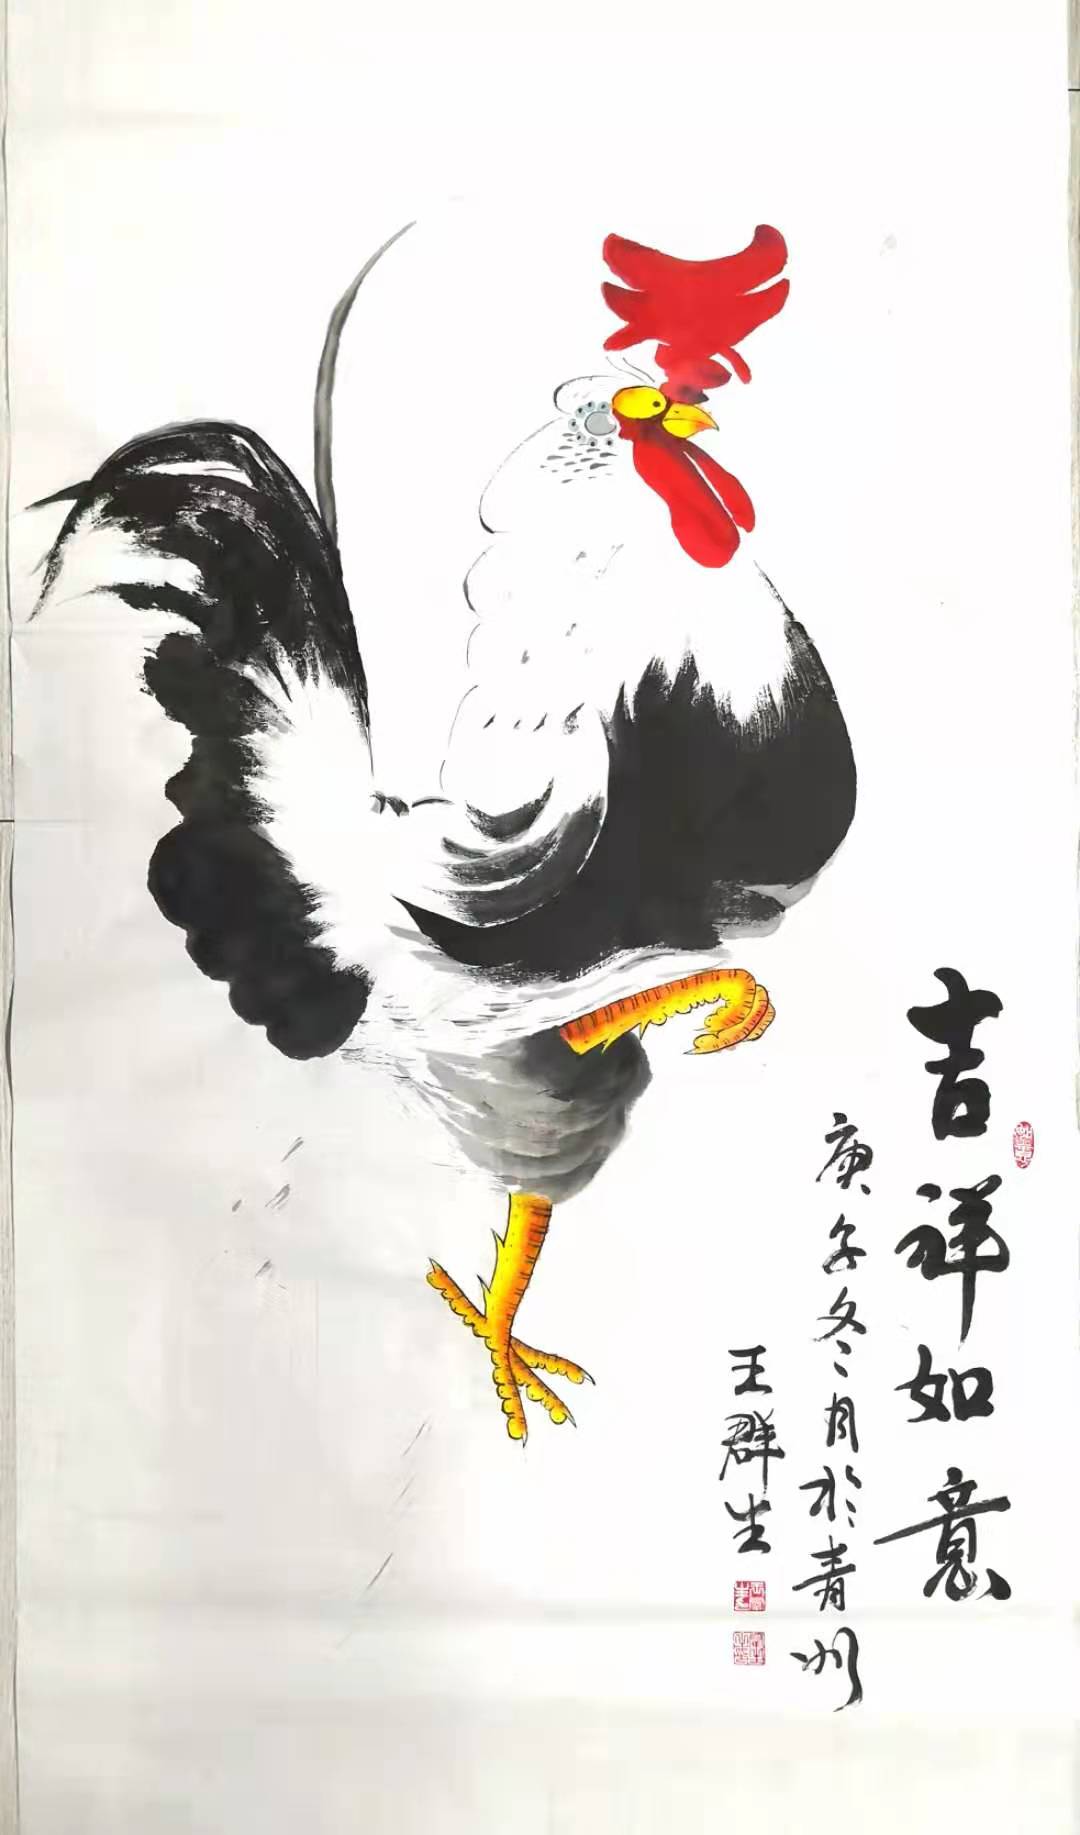 吉祥如意
庚子冬月於青州
王群生